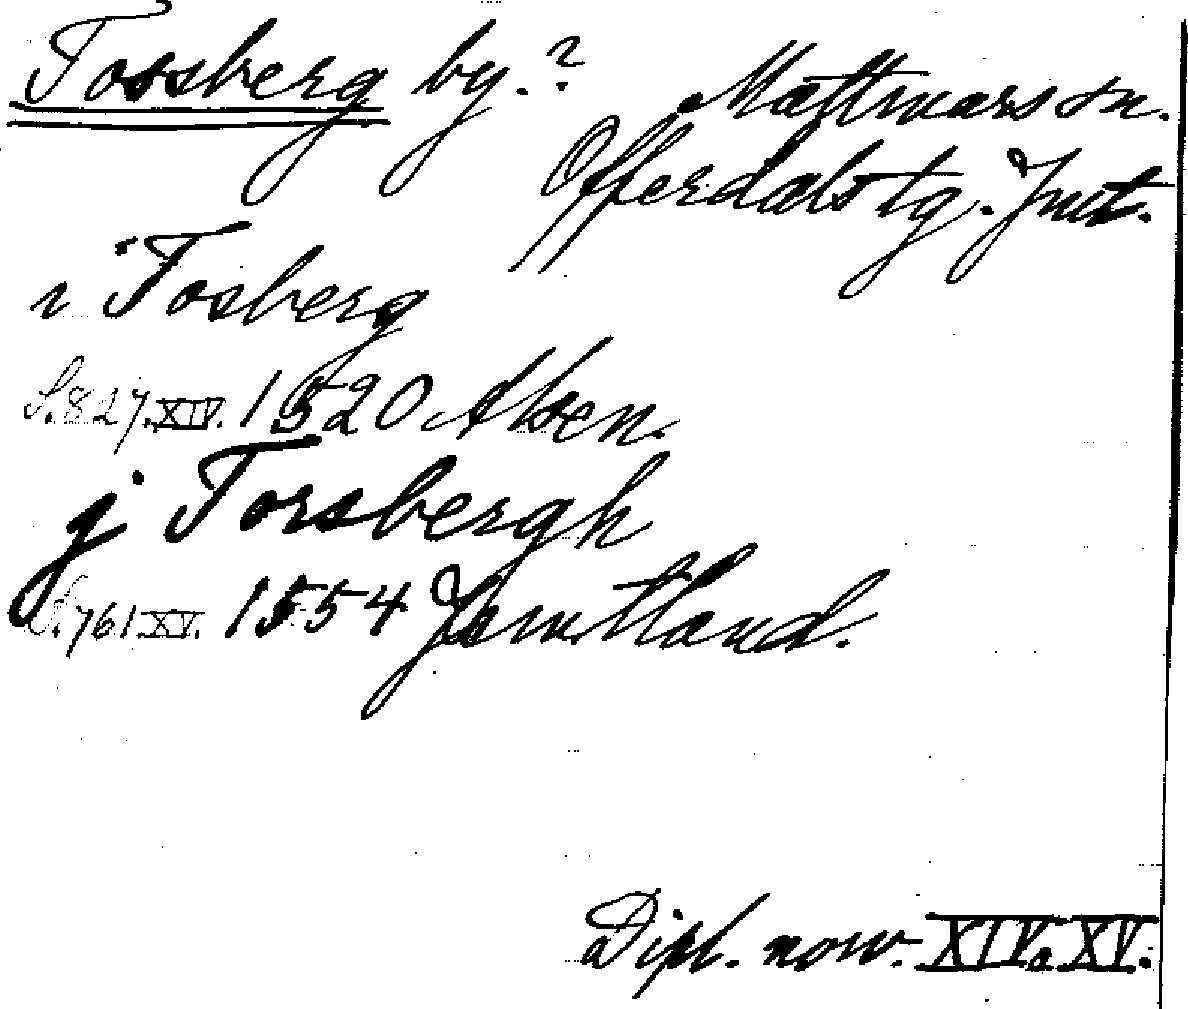 Tossberg by.?
Mattmars sn.
Offerdals tg. Jmt.
i Tosberg
S. 827. XIV. 1520 Alsen.
j Torsbergh
S. 761 XV. 1554 Jämtland.
Dipl. norv. XIV o XV.